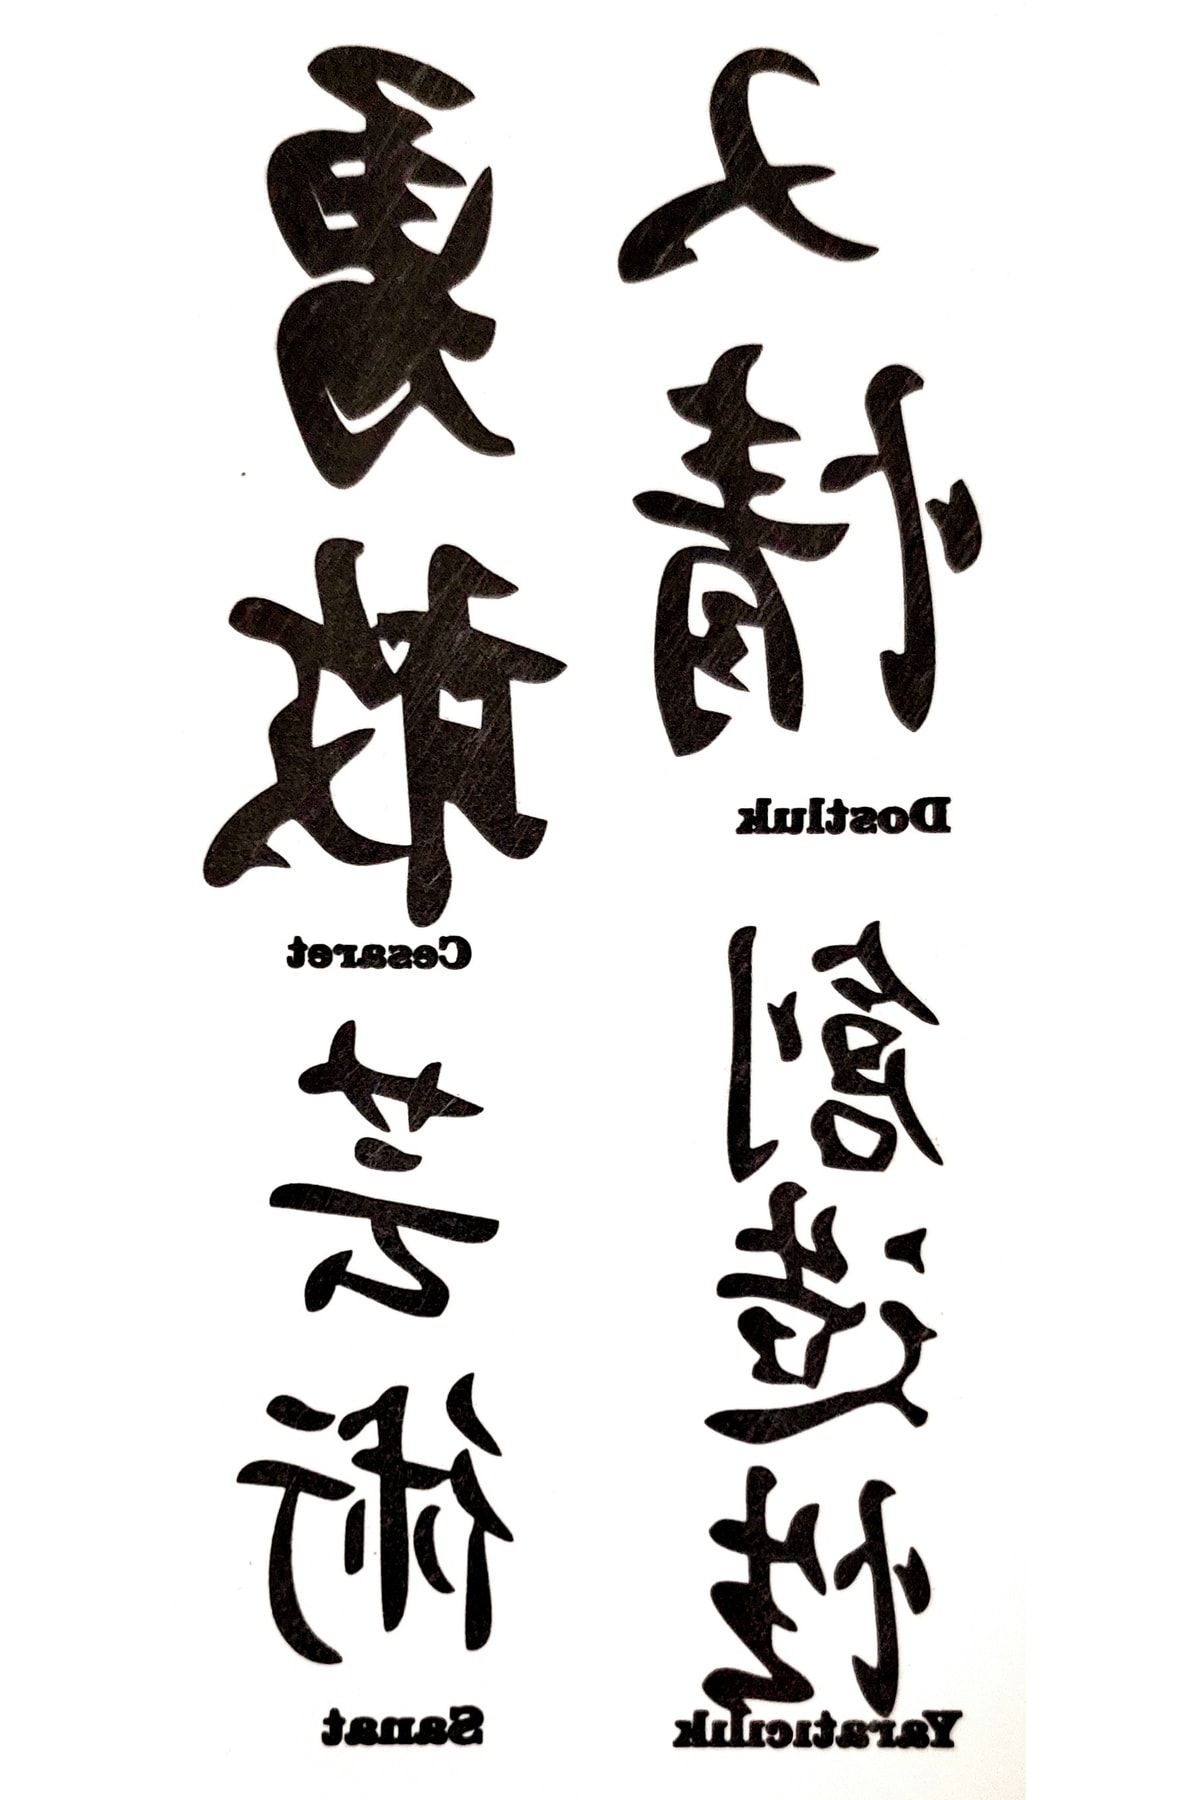 勇敢
Cesaret
情
Dostluk
術
Sanat
創造性
Yaratıcılık